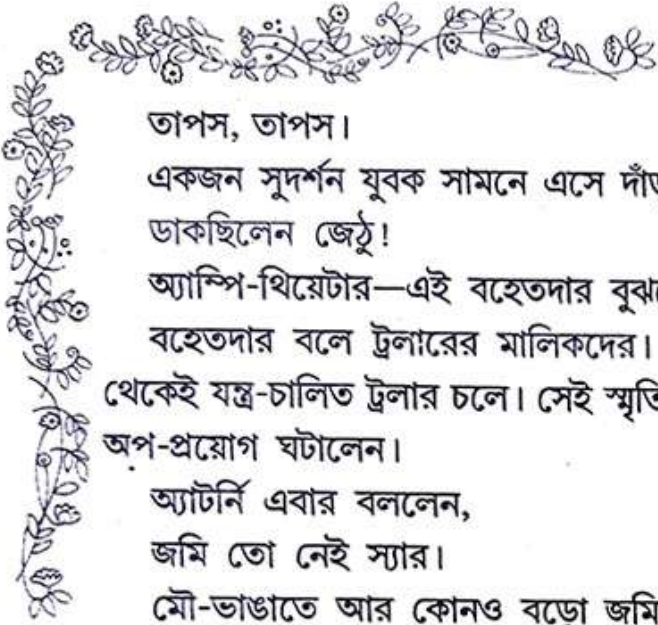 তাপস, তাপস।
একজন সুদর্শন যুবক সামনে এসে
ডাকছিলেন জেঠু!
অ্যাম্পি-থিয়েটার—এই বহেতদার
বহেতদার বলে ট্রলারের মালিকদের।
থেকেই যন্ত্র-চালিত ট্রলার চলে। সেই
অপ-প্রয়োগ ঘটালেন।
অ্যাটর্নি এবার বললেন,
জমি তো নেই স্যার।
মৌ-ভাঙাতে আর কোনও বড়ো জমি